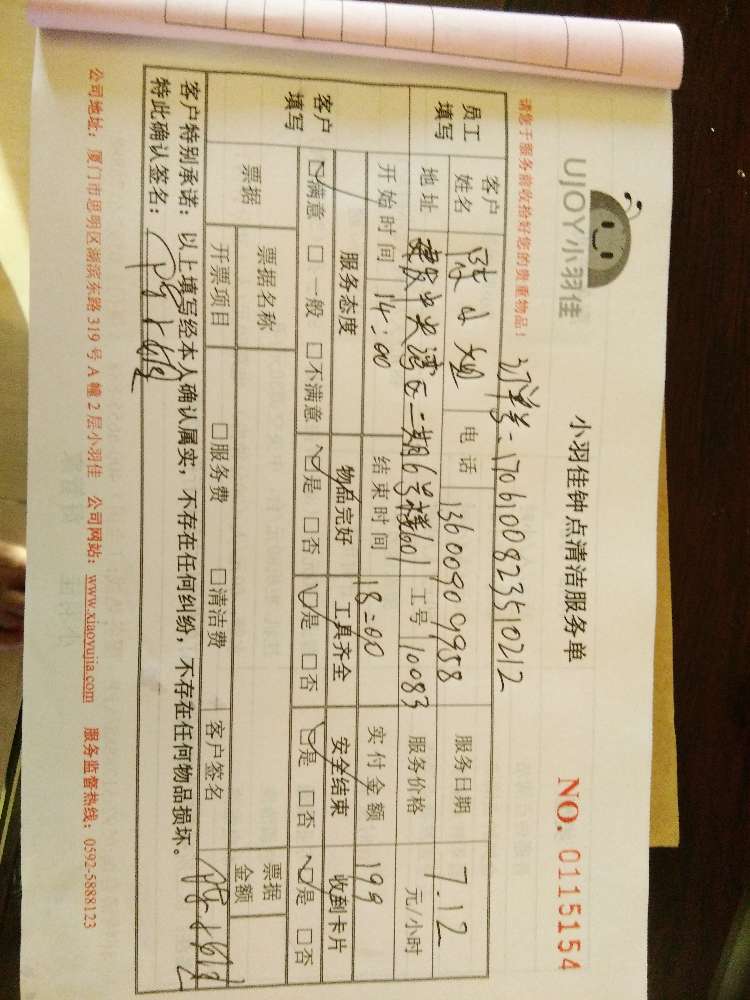 UJOY小羽佳
小羽佳钟点清洁服务单
NO. 0115154
请您于服务前收拾好您的贵重物品!
订单号-1706100823510212
员工填写 客户姓名 陈小姐 电话 13600909988 服务日期 7.12
地址 中央湾区二期6号楼601 工号 10083 服务价格 元/小时
开始时间 14:00 结束时间 18:00 实付金额 199
客户填写 服务态度 物品完好 工具齐全 安全结束 收到卡片
☑满意 □一般 □不满意 ☑是 □否 ☑是 □否 ☑是 □否 ☑是 □否
票据 票据名称 票据金额
开票项目 □服务费 □清洁费 客户签名 陈小姐
客户特别承诺:以上填写经本人确认属实,不存在任何纠纷,不存在任何物品损坏。
特此确认签名:陈小姐
公司地址:厦门市思明区湖滨东路319号A幢2层小羽佳 公司网站:www.xiaoyujia.com 服务监督热线:0592-5888123